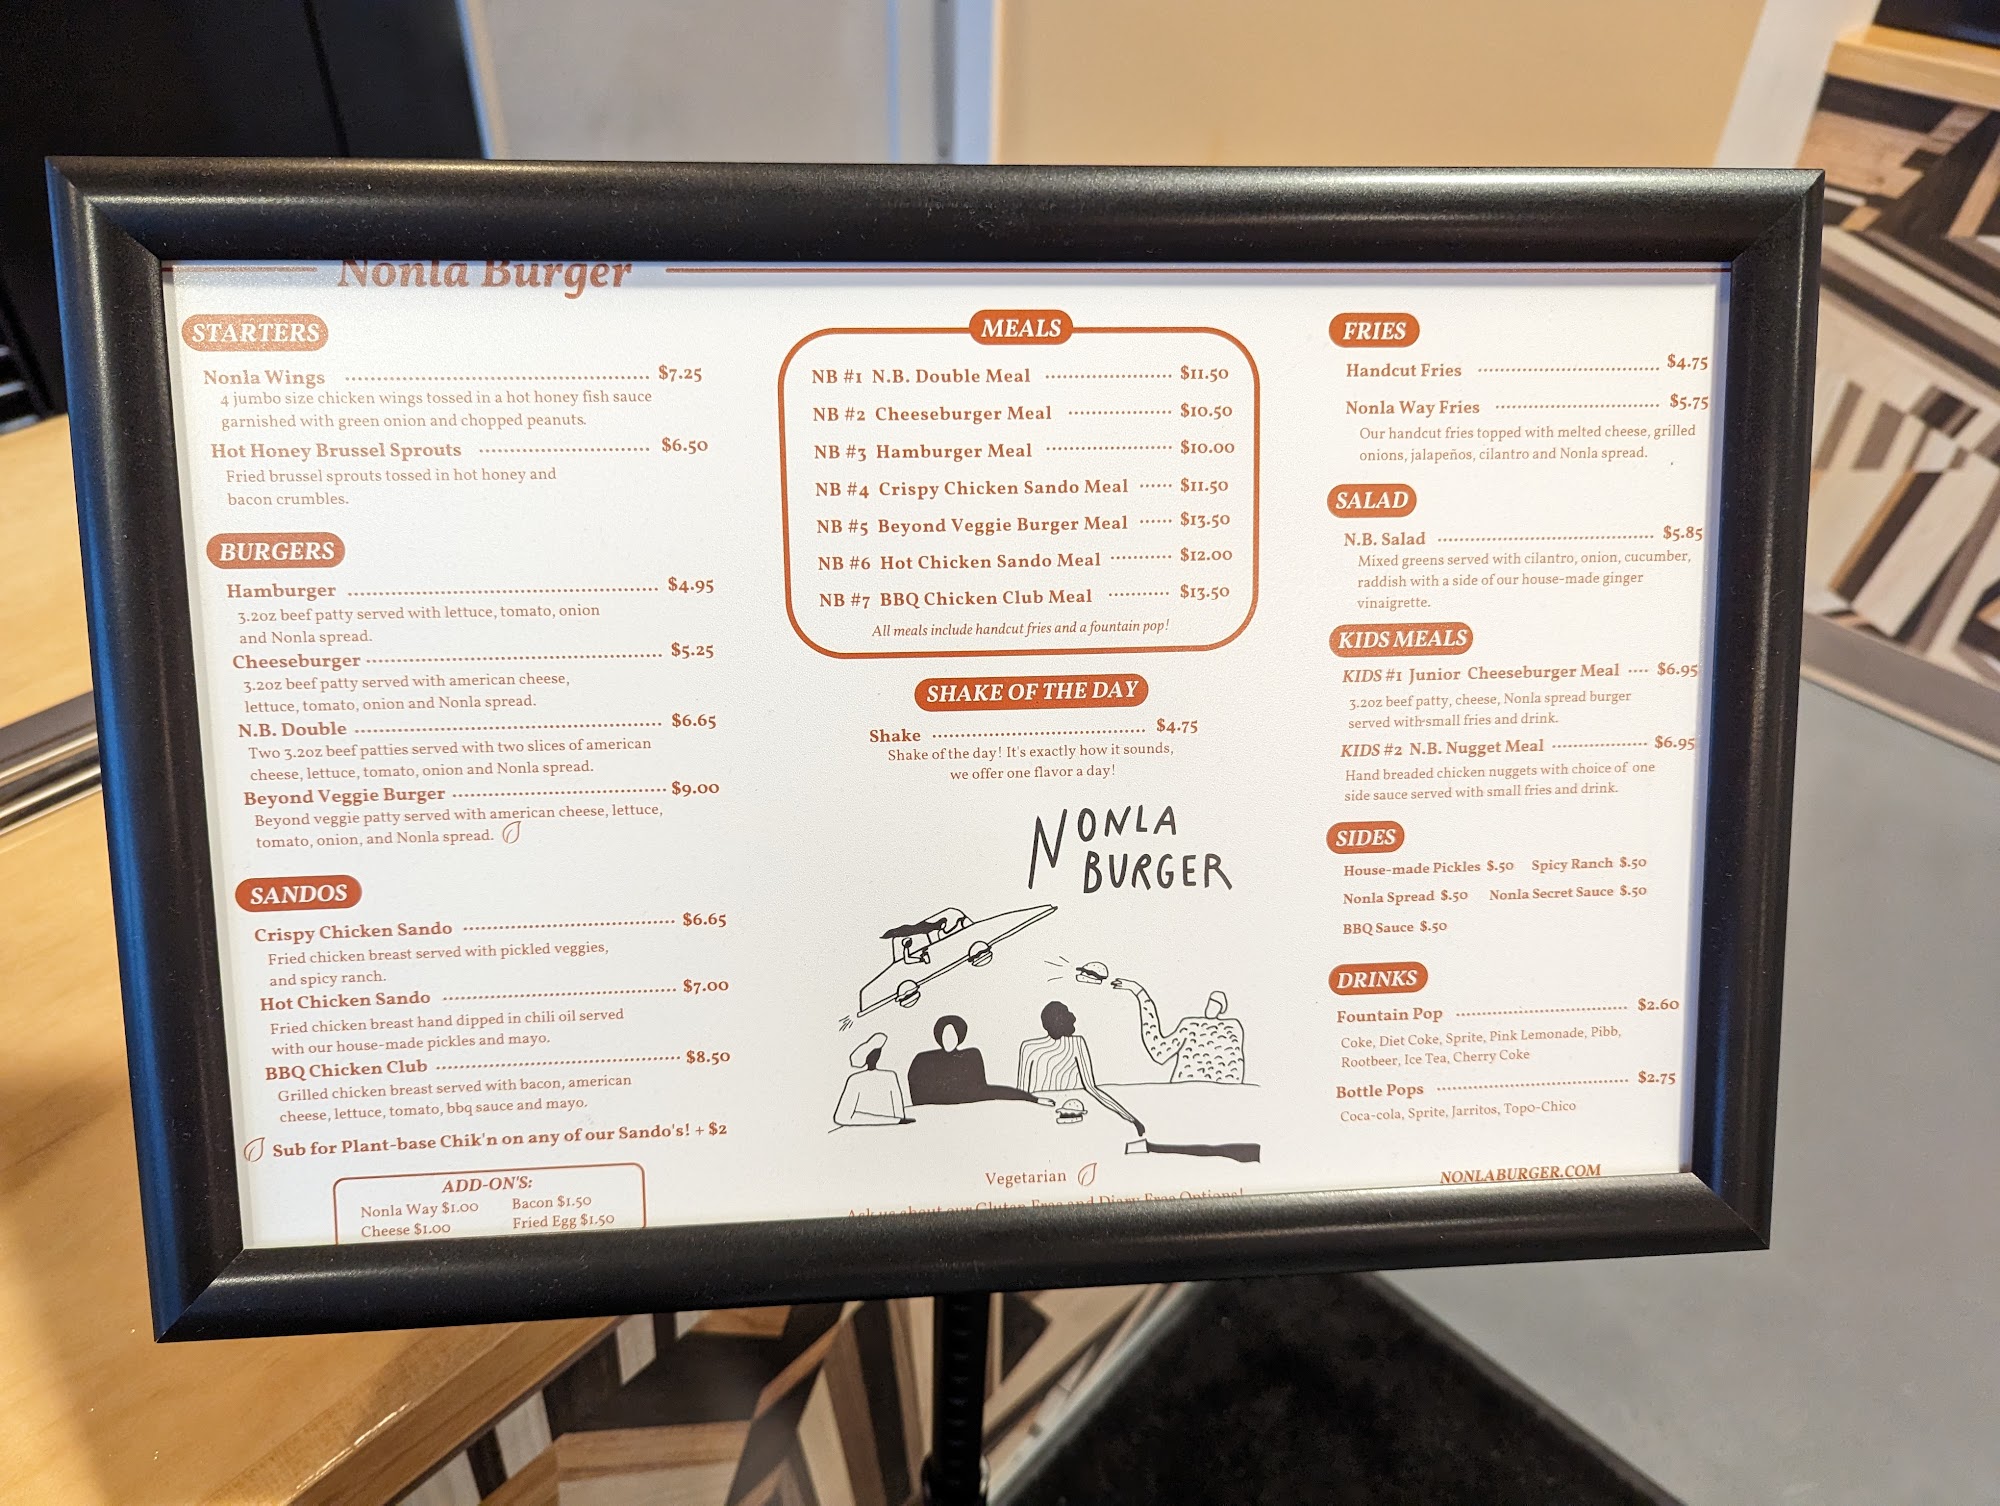 Nonla Burger
STARTERS
Nonla Wings ........ $7.25
4 jumbo size chicken wings tossed in a hot honey fish sauce
garnished with green onion and chopped peanuts.
Hot Honey Brussel Sprouts ........ $6.50
Fried brussel sprouts tossed in hot honey and
bacon crumbles.
BURGERS
Hamburger ........ $4.95
3.2oz beef patty served with lettuce, tomato, onion
and Nonla spread.
Cheeseburger ........ $5.25
3.2oz beef patty served with american cheese,
lettuce, tomato, onion and Nonla spread.
N.B. Double ........ $6.65
Two 3.2oz beef patties served with two slices of american
cheese, lettuce, tomato, onion and Nonla spread.
Beyond Veggie Burger ........ $9.00
Beyond veggie patty served with american cheese, lettuce,
tomato, onion, and Nonla spread.
SANDOS
Crispy Chicken Sando ........ $6.65
Fried chicken breast served with pickled veggies,
and spicy ranch.
Hot Chicken Sando ........ $7.00
Fried chicken breast hand dipped in chili oil served
with our house-made pickles and mayo.
BBQ Chicken Club ........ $8.50
Grilled chicken breast served with bacon, american
cheese, lettuce, tomato, bbq sauce and mayo.
Sub for Plant-base Chik'n on any of our Sando's! + $2
ADD-ON'S:
Nonla Way $1.00 Bacon $1.50
Cheese $1.00 Fried Egg $1.50
MEALS
NB #1 N.B. Double Meal ........ $11.50
NB #2 Cheeseburger Meal ........ $10.50
NB #3 Hamburger Meal ........ $10.00
NB #4 Crispy Chicken Sando Meal ...... $11.50
NB #5 Beyond Veggie Burger Meal ...... $13.50
NB #6 Hot Chicken Sando Meal ........ $12.00
NB #7 BBQ Chicken Club Meal ........ $13.50
All meals include handcut fries and a fountain pop!
SHAKE OF THE DAY
Shake ........ $4.75
Shake of the day! It's exactly how it sounds,
we offer one flavor a day!
NONLA
BURGER
Vegetarian
Ask us about our Gluten Free and Diary Free Options!
FRIES
Handcut Fries ........ $4.75
Nonla Way Fries ........ $5.75
Our handcut fries topped with melted cheese, grilled
onions, jalapeños, cilantro and Nonla spread.
SALAD
N.B. Salad ........ $5.85
Mixed greens served with cilantro, onion, cucumber,
raddish with a side of our house-made ginger
vinaigrette.
KIDS MEALS
KIDS #1 Junior Cheeseburger Meal .... $6.95
3.2oz beef patty, cheese, Nonla spread burger
served with small fries and drink.
KIDS #2 N.B. Nugget Meal ........ $6.95
Hand breaded chicken nuggets with choice of one
side sauce served with small fries and drink.
SIDES
House-made Pickles $.50 Spicy Ranch $.50
Nonla Spread $.50 Nonla Secret Sauce $.50
BBQ Sauce $.50
DRINKS
Fountain Pop ........ $2.60
Coke, Diet Coke, Sprite, Pink Lemonade, Pibb,
Rootbeer, Ice Tea, Cherry Coke
Bottle Pops ........ $2.75
Coca-cola, Sprite, Jarritos, Topo-Chico
NONLABURGER.COM